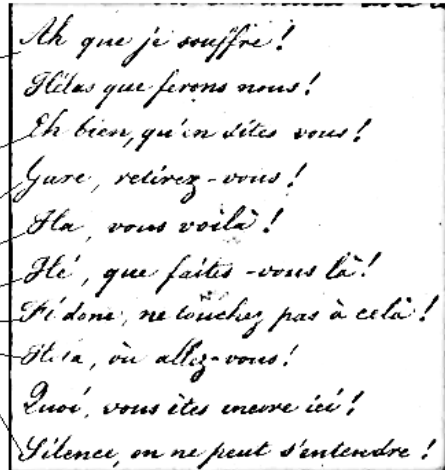 Ah que je souffre!
Hélas que ferons nous!
Eh bien, qu'en dites vous!
Gare, retirez-vous!
Ha, vous voilà!
Hé, que faites-vous là!
Fi donc, ne touchez pas à celà!
Hola, où allez-vous!
Quoi, vous êtes encore ici!
Silence, on ne peut s'entendre!